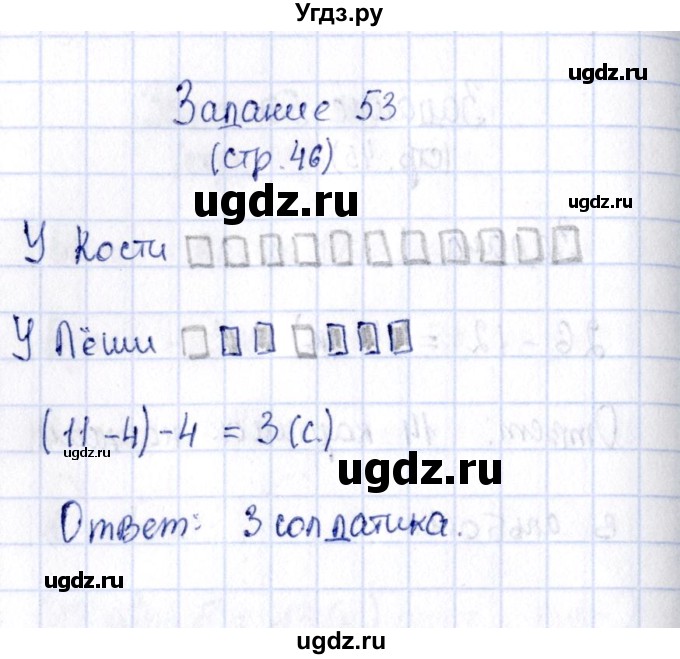 Угдз.ру
ugdz.ru
Задание 53
(стр. 46)
ugdz.ru
ugdz.ru
У Кости
У Лёши
(11-4)-4 = 3 (с.)
ugdz.ru
ugdz.ru
Ответ: 3 солдатика.
ugdz.ru
ugdz.ru
ugdz.ru